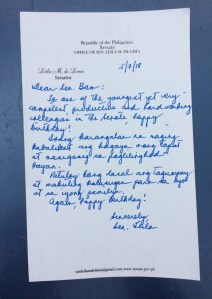 Republic of the Philippines
Senate
OFFICE OF SEN. LEILA M. DE LIMA
Leila M. de Lima
Senator
5/7/18
Dear Sen. Bam:
To one of the youngest yet very
competent, productive and hardworking
colleagues in the Senate happy
birthday!
Isang karangalan na naging
kabalikat ang kagaya mong tapat
at masigasig na paglilingkod
bayan.
Patuloy kang
at mabuting kalusugan para sa iyo
at sa iyong pamilya.
Again, Happy Birthday!
Sincerely,
Sen. Leila